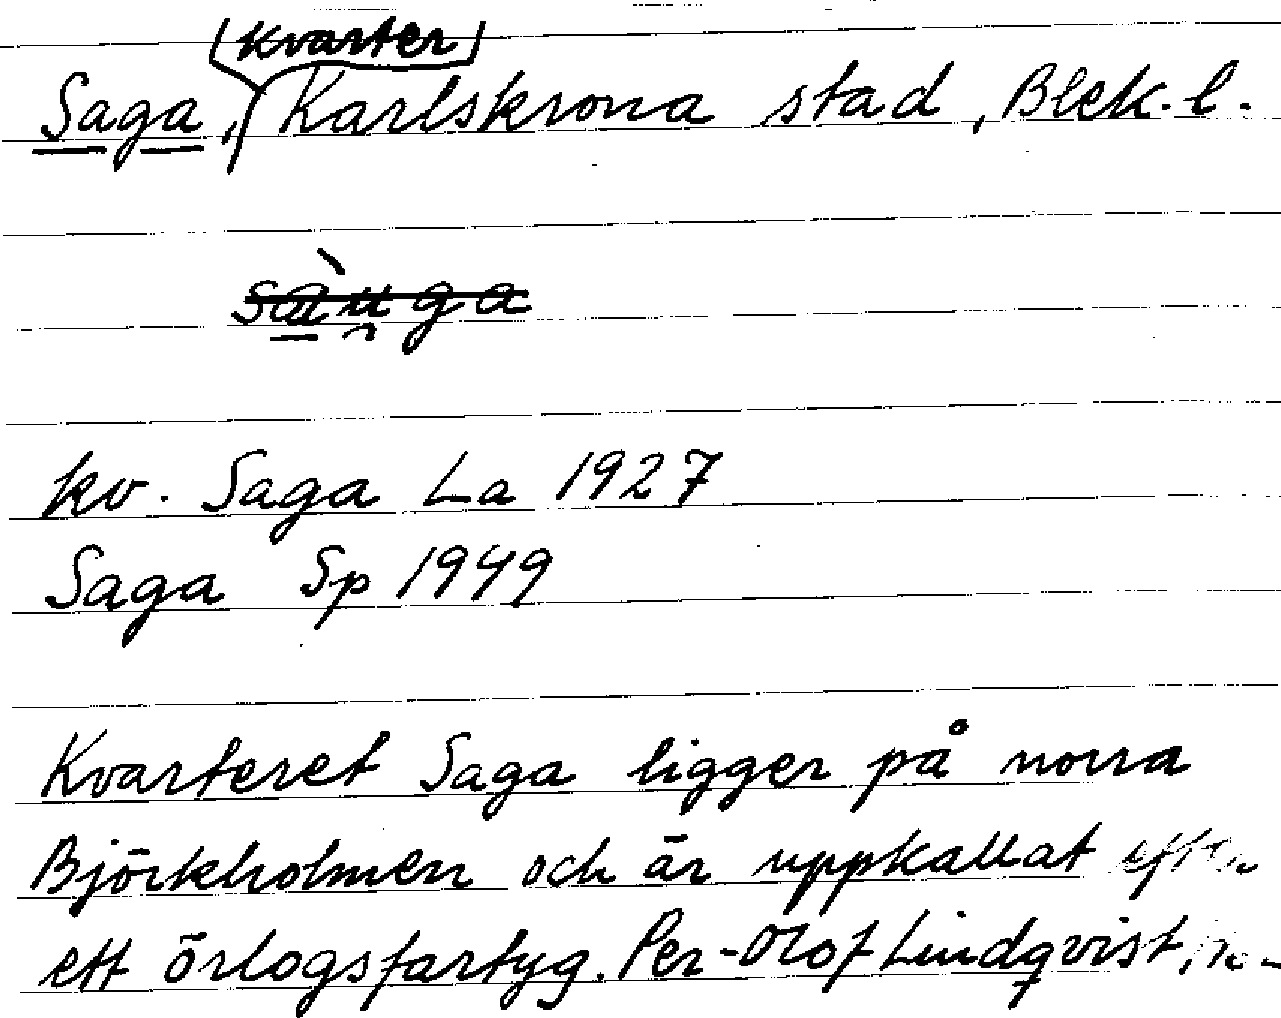 kvarter
Saga, Karlskrona stad, Blek. l.
sàu̯ga
kv. Saga La 1927
Saga Sp 1949
Kvarteret Saga ligger på norra
Björkholmen och är uppkallat efter
ett örlogsfartyg. Per-Olof Lindqvist,